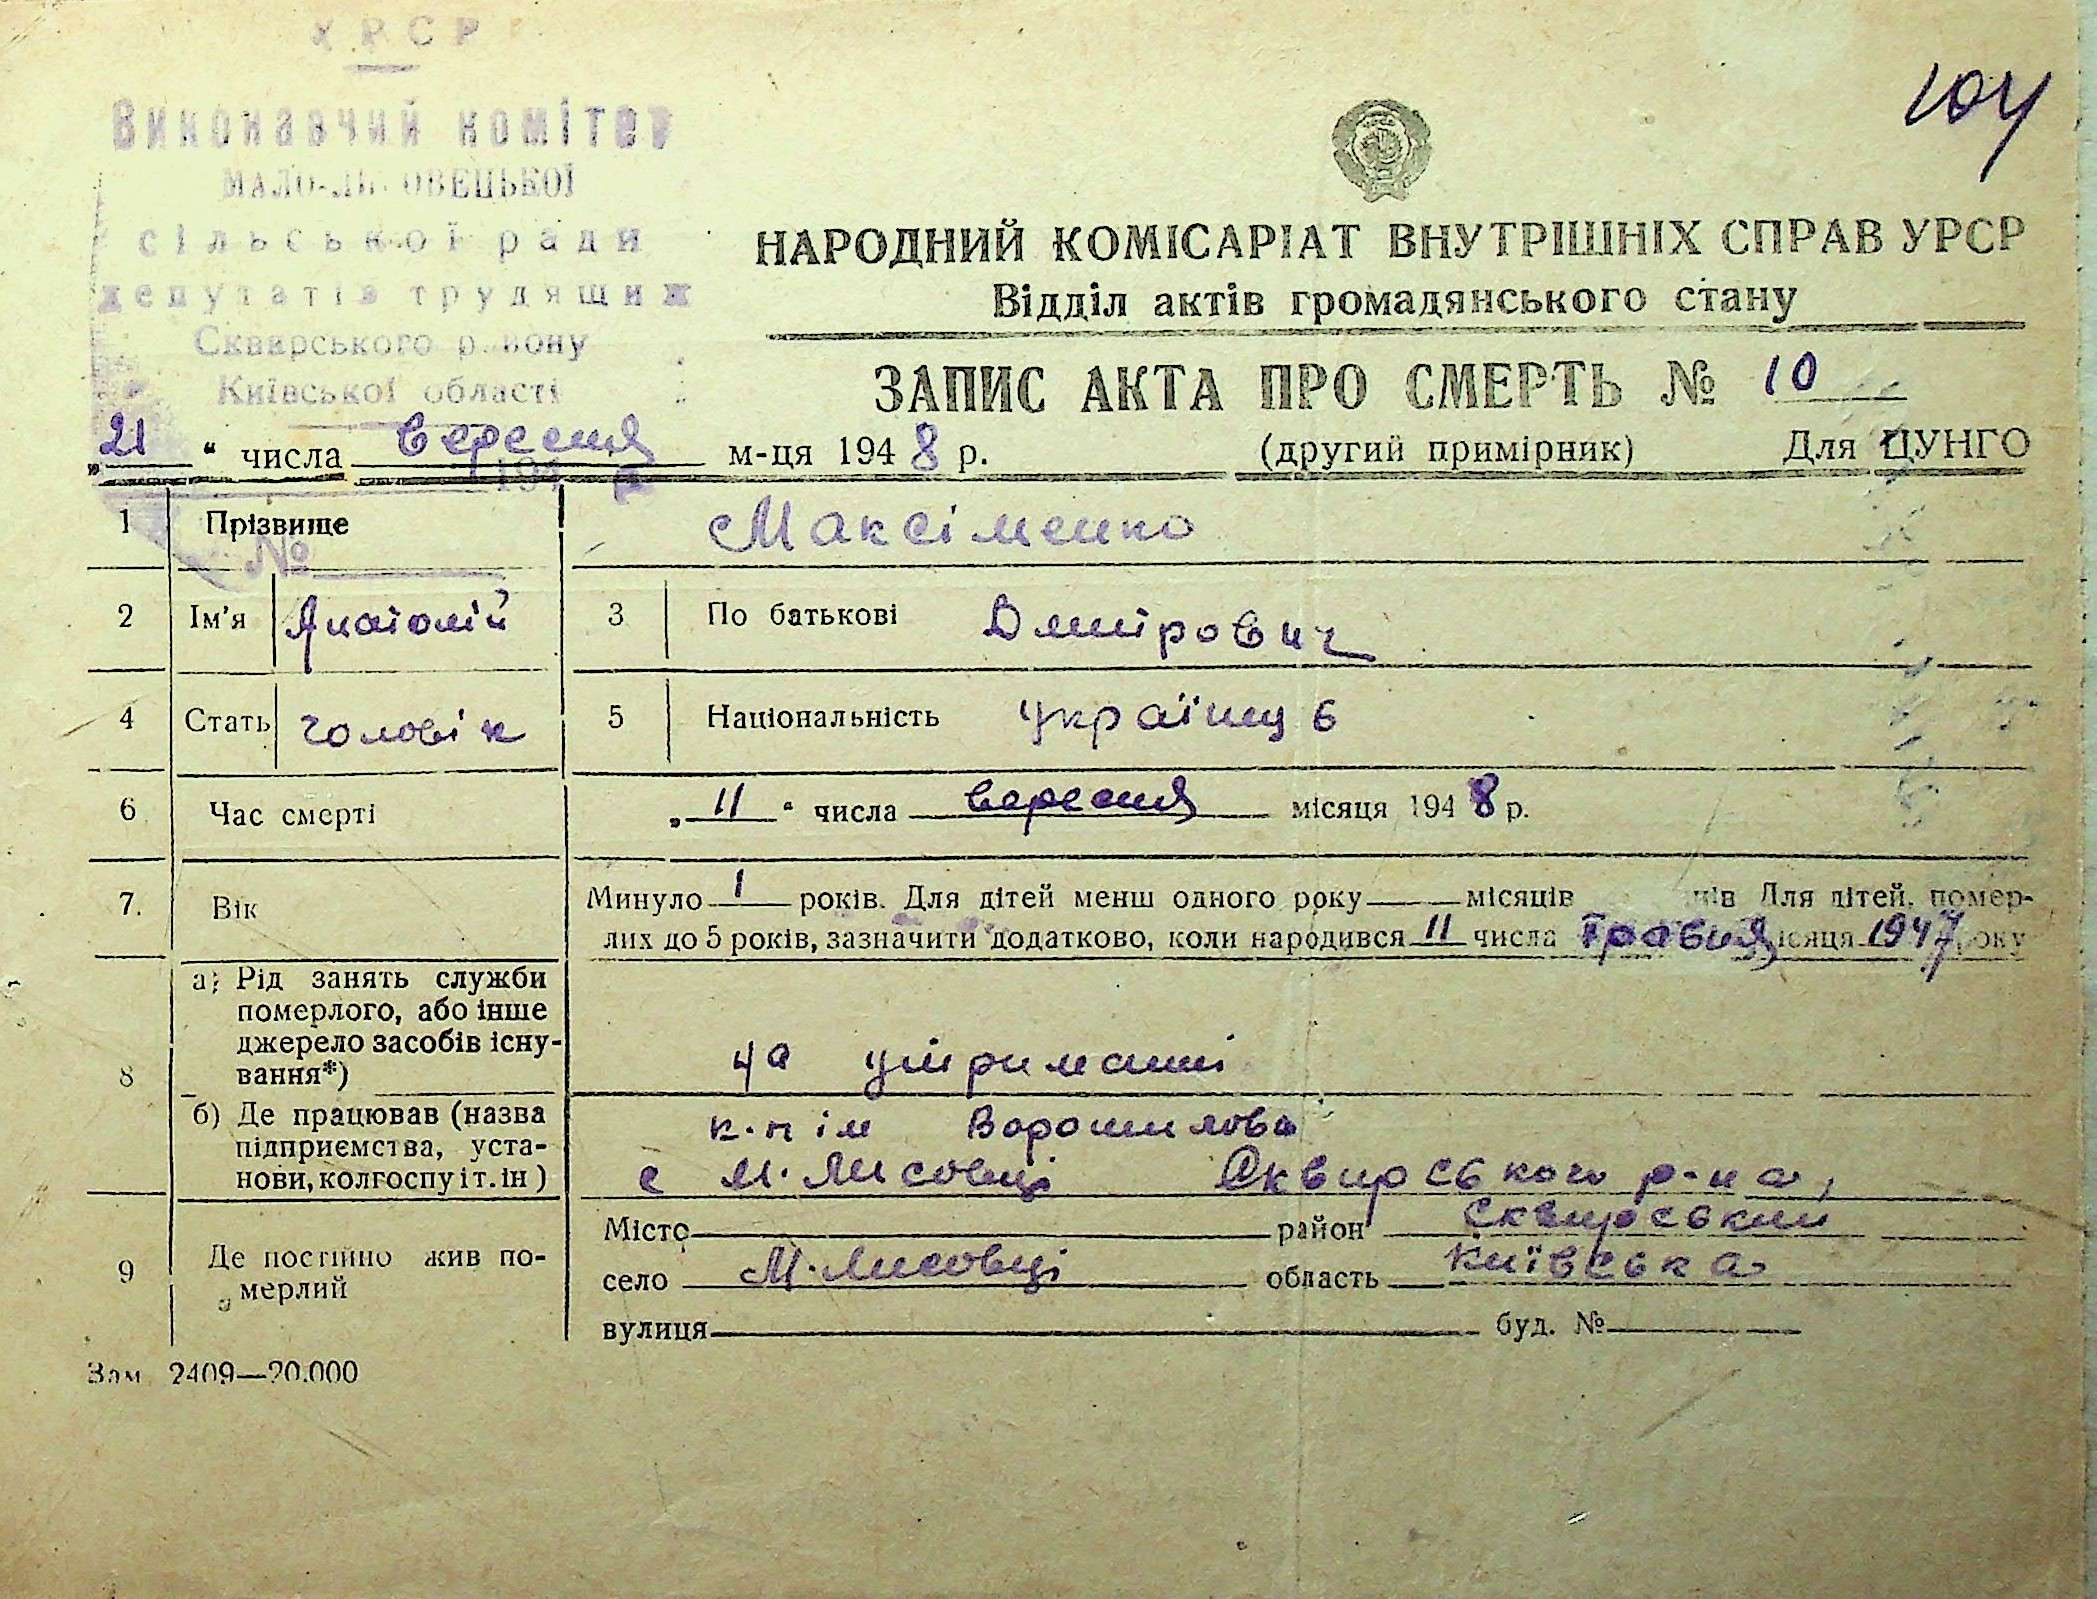 УРСР
Виконавчий комітет
сільської ради
депутатів трудящих
Сквирського району
Київської області
104
НАРОДНИЙ КОМІСАРІАТ ВНУТРІШНІХ СПРАВ УРСР
Відділ актів громадянського стану
ЗАПИС АКТА ПРО СМЕРТЬ № 10
„21“ числа вересня м-ця 1948 р. (другий примірник) Для ЦУНГО
194
№
1 Прізвище Максіменко
2 Ім'я Анатолій 3 По батькові Дмитрович
4 Стать чоловік 5 Національність Українець
6 Час смерті „11“ числа вересня місяця 1948 р.
7. Вік Минуло 1 років. Для дітей менш одного року — місяців днів Для дітей, помер-
лих до 5 років, зазначити додатково, коли народився 11 числа травня місяця 1947 року
8 а) Рід занять служби
померлого, або інше
джерело засобів існу-
вання*) на утриманні
б) Де працював (назва
підприємства, уста-
нови, колгоспу і т. ін) к-п ім Ворошилова
с М. Лисовці Сквирського р-на,
9 Де постійно жив по-
мерлий
Місто район Сквирський
село М. Лисовці область Київська
вулиця буд. №
Зам 2409—20.000